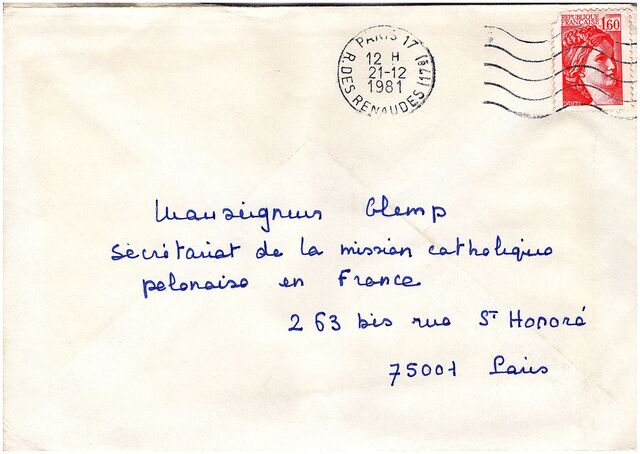 PARIS 17
12 H
21-12
1981
R. DES RENAUDES (17e)
REPUBLIQUE
FRANÇAISE
1,60
Monseigneur Glemp
Secrétariat de la mission catholique
polonaise en France
263 bis rue St Honoré
75001 Paris